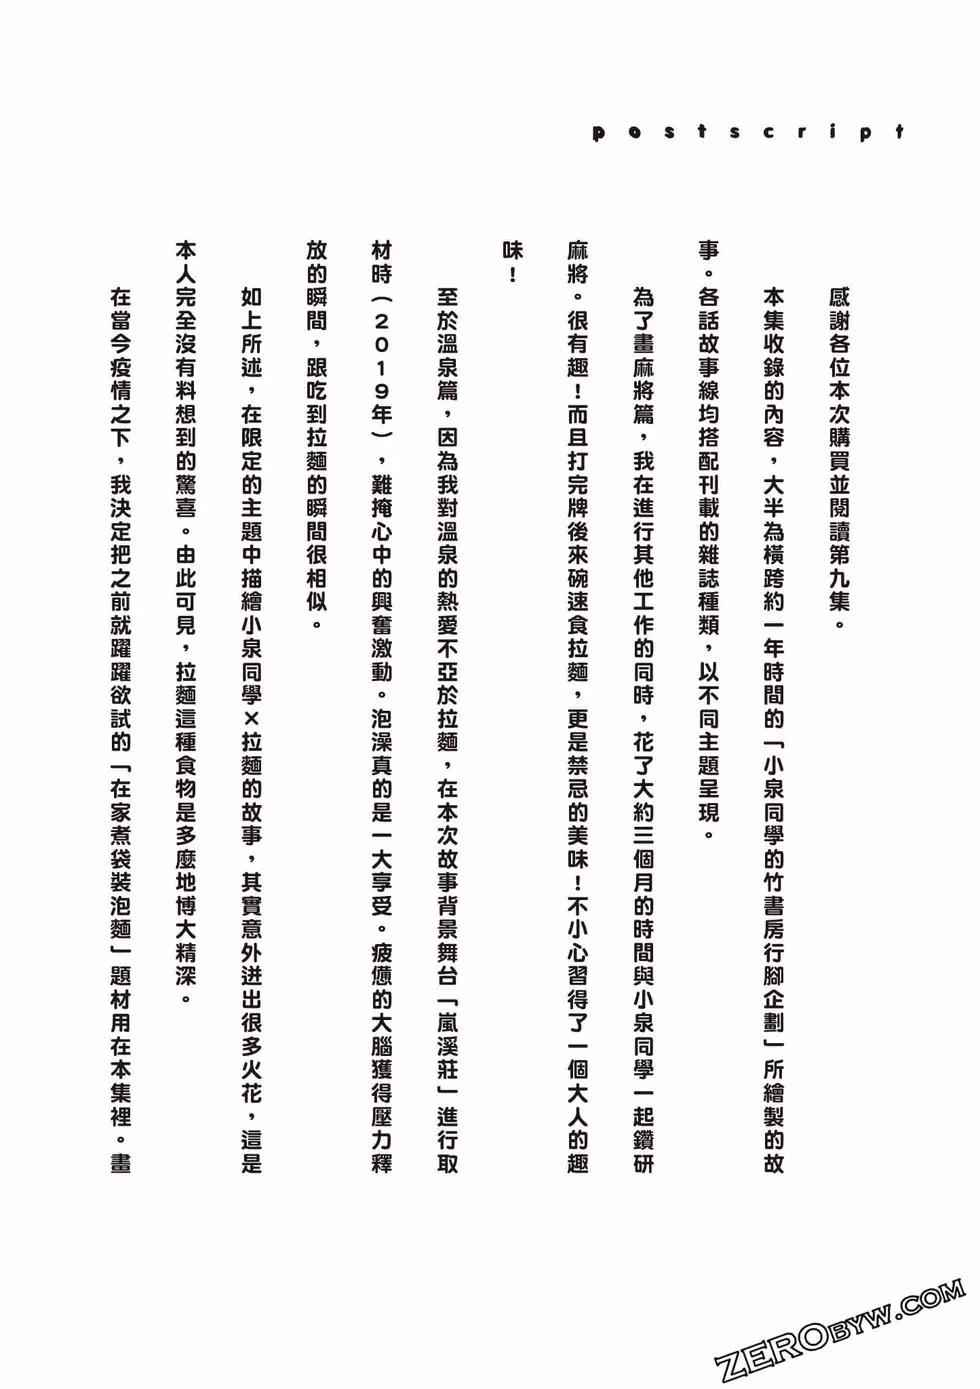 postscript
感謝各位本次購買並閱讀第九集。
本集收錄的內容，大半為橫跨約一年時間的「小泉同學的竹書房行腳企劃」所繪製的故
事。各話故事線均搭配刊載的雜誌種類，以不同主題呈現。
為了畫麻將篇，我在進行其他工作的同時，花了大約三個月的時間與小泉同學一起鑽研
麻將。很有趣！而且打完牌後來碗速食拉麵，更是禁忌的美味！不小心習得了一個大人的趣
味！
至於溫泉篇，因為我對溫泉的熱愛不亞於拉麵，在本次故事背景舞台「嵐溪莊」進行取
材時（2019年），難掩心中的興奮激動。泡澡真的是一大享受。疲憊的大腦獲得壓力釋
放的瞬間，跟吃到拉麵的瞬間很相似。
如上所述，在限定的主題中描繪小泉同學×拉麵的故事，其實意外迸出很多火花，這是
本人完全沒有料想到的驚喜。由此可見，拉麵這種食物是多麼地博大精深。
在當今疫情之下，我決定把之前就躍躍欲試的「在家煮袋裝泡麵」題材用在本集裡。畫
ZEROBYW.COM